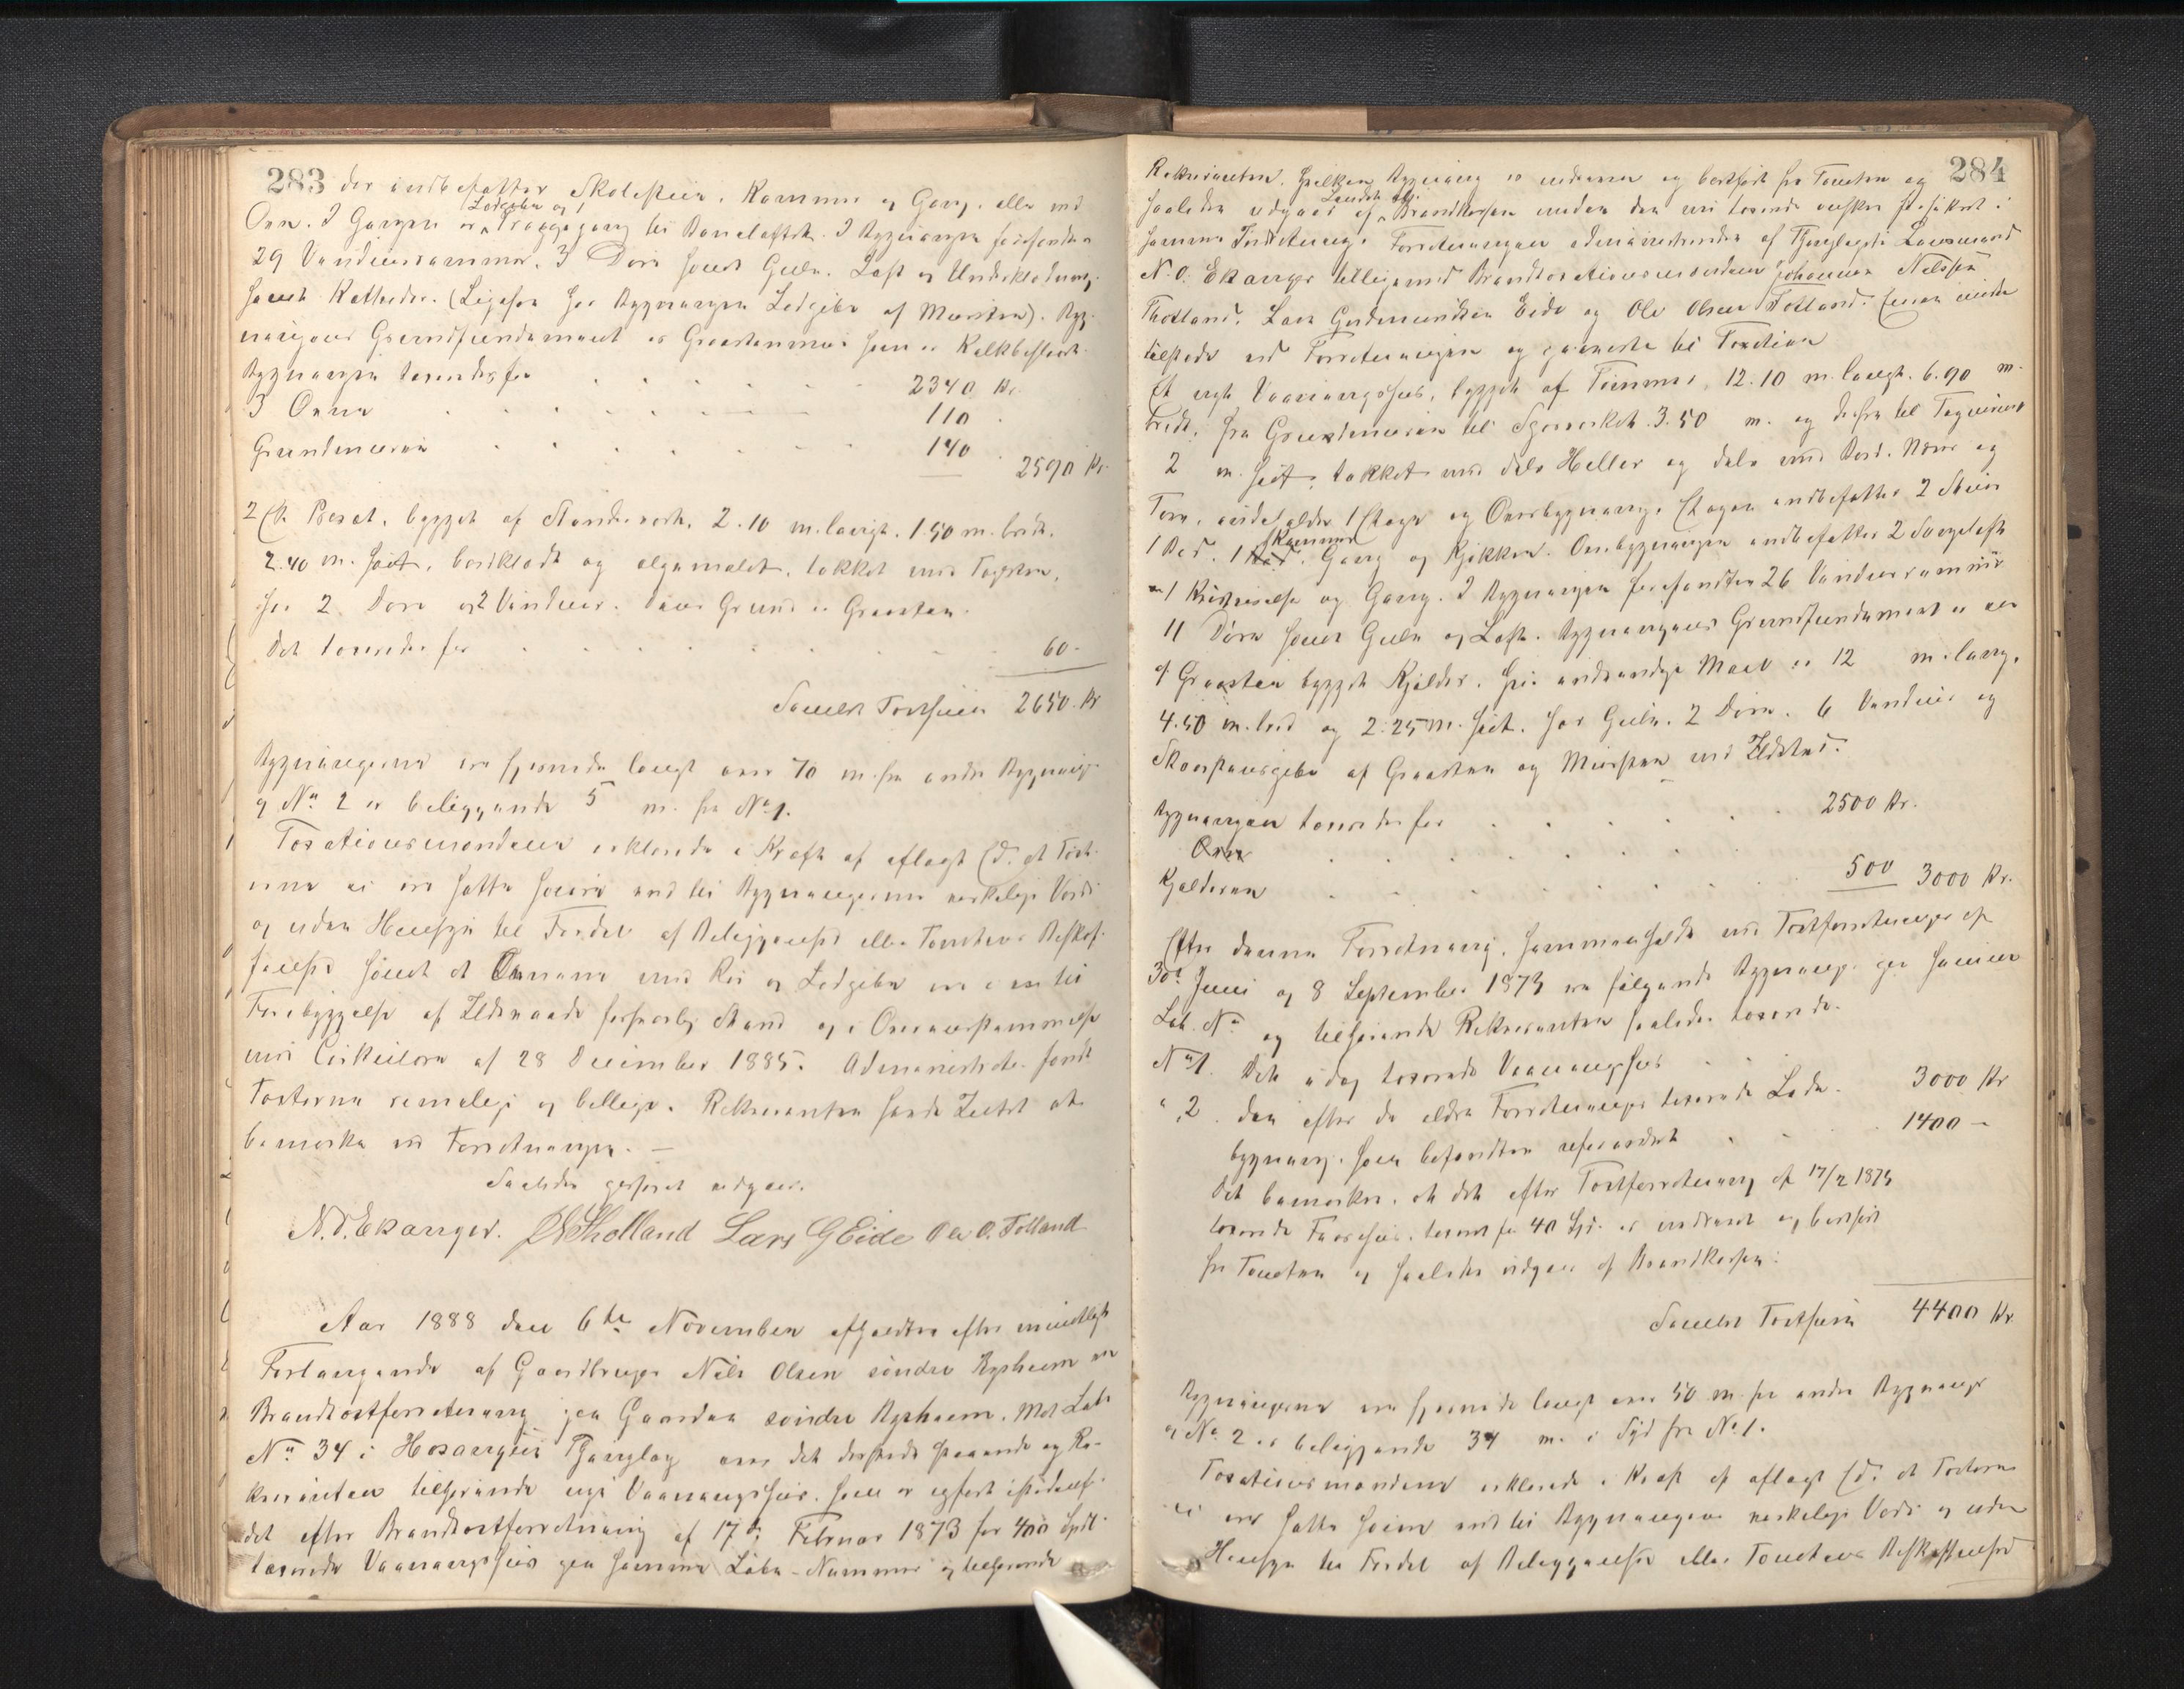 283
der indbefatter Skolestuen, Kammer og Gang, alle med
Ovn. I Gangen er Ledgibe og Trappegang til Bordloftet. I Bygningen forefindes
29 Vinduesrammer, 3 Døre samt Gulv, Loft og Underklædning
samt Katheder. (Ligesom har Bygningen Ledgibe af Mursten). Byg-
ningens Grundfundament er Graastensmur som er Kalkbeslaaet.
Bygningen taxeredes for 2340 Kr.
3 Ovne 110
Grundmuren 140 2590 Kr.
2 Et Privet, bygget af Standværk, 2.10 m. langt, 1.50 m. bredt,
2.40 m. høit, bordklædt og oljemalet, tækket med Tagsten,
har 2 Døre og 2 Vinduer. Dens Grund er Graasten.
Det taxeredes for 60 -
Samlet Taxtsum 2650 Kr
Bygningerne ere fjernede langt over 70 m. fra andre Bygninger
og No. 2 er beliggende 5 m. fra No 1.
Taxationsmændene erklærede i Kraft af aflagt Ed, at Taxt-
erne ei ere satte høiere end til Bygningernes virkelige Værdi
og uden Hensyn til Fordel af Beliggenhed eller Tomtens Beskaf-
fenhed samt at Ovnene med Rør og Ledgibe ere i en til
Forebyggelse af Ildsvaade forsvarlig Stand og i Overensstemmelse
med Cirkulære af 28 December 1885. Administrator fandt
Taxterne rimelige og billige. Rekvirenten havde Intet at
bemærke ved Forretningen. —
Saaledes passeret udgaar.
N. O. Ekanger. JNTholland Lars GEide Ole O. Tolland
Aar 1888 den 6te November afholdtes efter mundtligt
Forlangende af Gaardbruger Nils Olsen søndre Byrkeim en
Brandtaxtforretning paa Gaarden søndre Byrkeim, Mat. Løbe
No 34 i Hosanger Thinglag over det derstede staaende og Re-
kvirenten tilhørende nye Vaaningshus, som er opført istedenfor
det efter Brandtaxtforretning af 17de Februar 1873 for 400 Spdl.
taxerede Vaaningshus paa samme Løbe-Nummer og tilhørende
284
Rekvirenten, hvilken Bygning er nedreven og bortført fra Tomten og
saaledes udgaar af Landets alm. Brandkassen medens den nu taxerede ønskes forsikret i
samme Indretning. Forretningen administreredes af Thinglagets Lensmand
N. O. Ekanger tilligemed Brandtaxationsmændene Johannes Nilssen
Tholland, Lars Gudmundsen Eide og Ole Olsen Tolland. Eieren mødte
tilstede ved Forretningen og paaviste til Taxation
Et nyt Vaaningshus, bygget af Tømmer, 12.10 m. langt, 6.90 m.
bredt, fra Grundmuren til Sperreskot 3.50 m. og derfra til Tagrønnet
2 m. høit, tækket med dels Heller og dels med Bord, Næver og
Torv, indeholder 1 Etage og Overbygning. Etagen indbefatter 2 Stuer
1 Bod, 1 Kammer, Gang og Kjøkken. Overbygningen indbefatter 2 Sovelofte
1 Kvistværelse og Gang. I Bygningen forefindtes 26 Vinduesrammer
11 Døre samt Gulv og Loft. Bygningens Grundfundament er en
af Graasten bygget Kjelder, hvis indvendige Maal er 12 m. lang,
4.50 m. bred og 2.25 m. høit, har Gulv, 2 Døre, 6 Vinduer og
Skorstenspibe af Graasten og Mursten med Ildsted.
Bygningen taxeredes for 2500 Kr.
Ovne
Kjelderen 500 3000 Kr.
Efter denne Forretning, sammenholdt med Taxtforretninger af
30te Juni og 8 September 1873 ere følgende Bygninger paa samme
Løb. No og tilhørende Rekvirenten saaledes taxerede.
No 1. Det i dag taxerede Vaaningshus 3000 Kr
" 2. den efter de ældre Forretninger taxerede Lade-
bygning, som befandtes uforandret 1400 -
Det bemærkes, at det efter Taxtforretning af 17/2 1873
taxerede Fæhus, taxeret for 40 Spd. er nedrevet og bortført
fra Tomten og saaledes udgaar af Brandkassen.
Samlet Taxtsum 4400 Kr.
Bygningerne ere fjernede langt over 50 m. fra andre Bygninger
og No. 2 er beliggende 34 m. i Syd fra No 1.
Taxationsmændene erklærede i Kraft af aflagt Ed, at Taxterne
ei ere satte høiere end til Bygningernes virkelige Værdi og uden
Hensyn til Fordel af Beliggenhed eller Tomtens Beskaffenhed